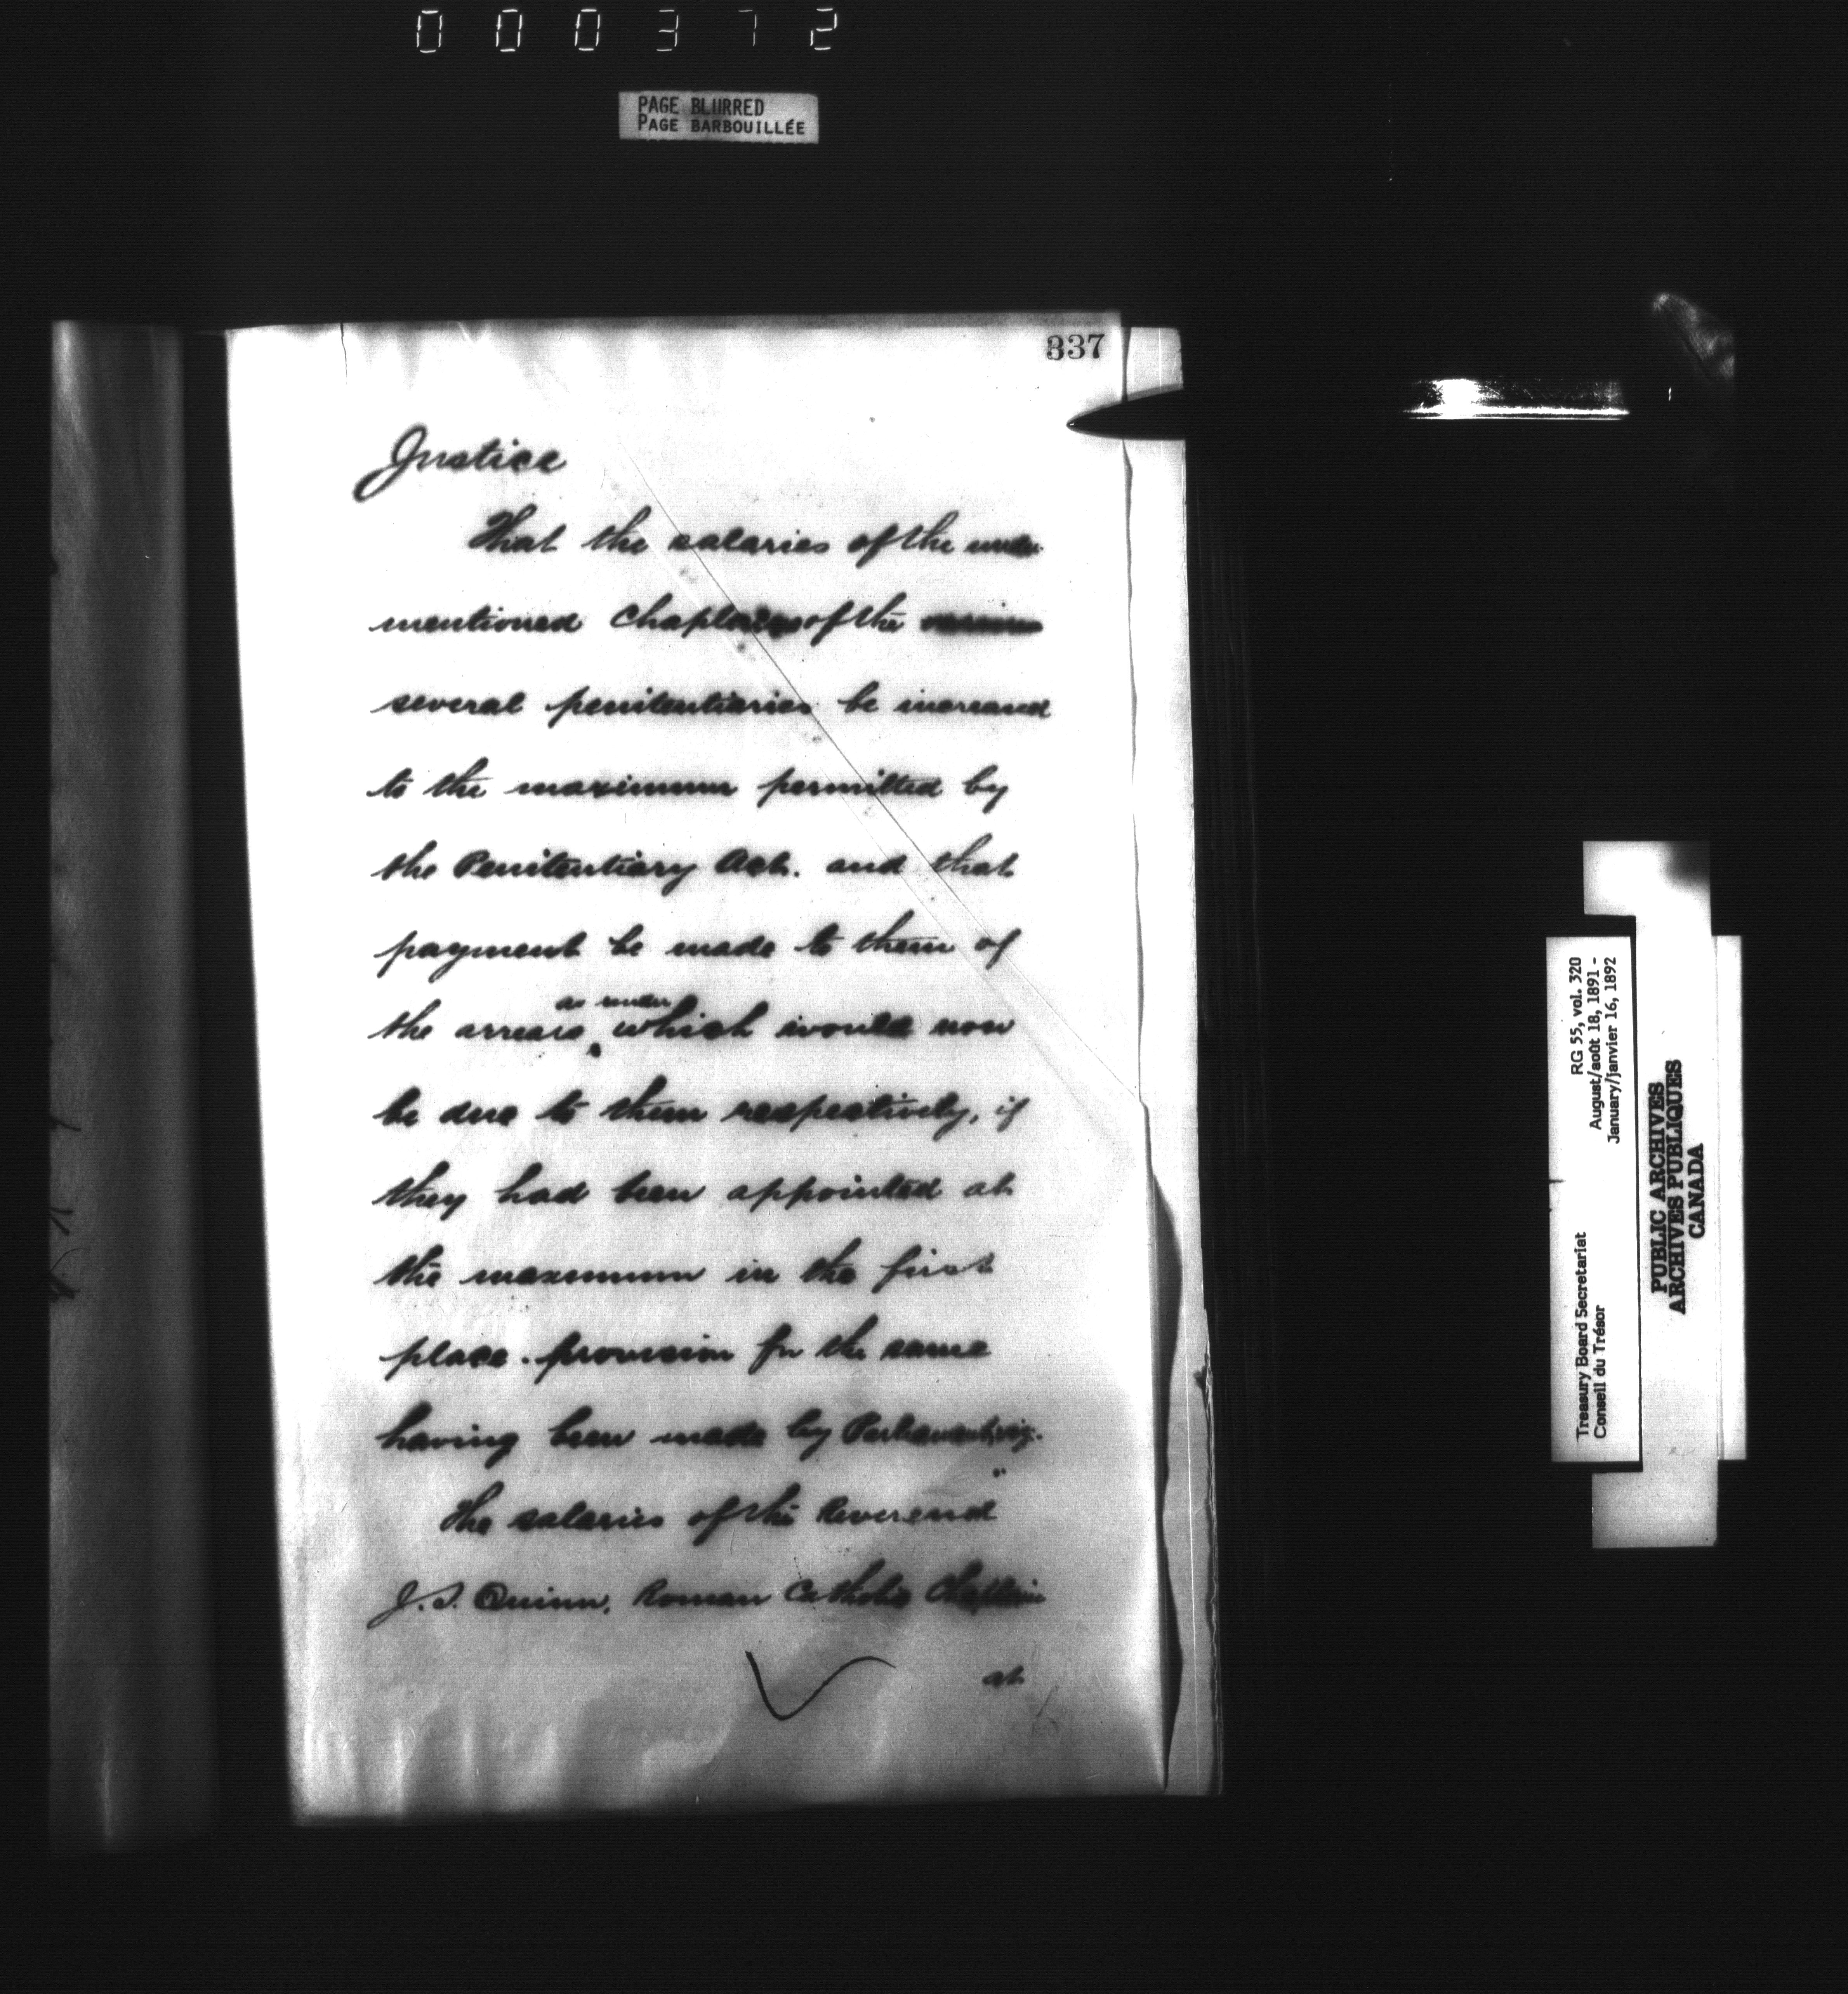 000372
PAGE BLURRED
PAGE BARBOUILLÉE
337
Justice
That the salaries of the under
mentioned Chaplains of the
several penitentiaries be increased
to the maximum permitted by
the Penitentiary Act. and that
payment be made to them of
as under
the arrears, which would now
be due to them respectively, if
they had been appointed at
the maximum in the first
place. provision for the same
having been made by Parliament, viz:
The salaries of the Reverend
J. S. Quinn, Roman Catholic Chaplain
at
Treasury Board Secretariat
Conseil du Trésor
RG 55, vol. 320
August/août 18, 1891 -
January/janvier 16, 1892
PUBLIC ARCHIVES
ARCHIVES PUBLIQUES
CANADA